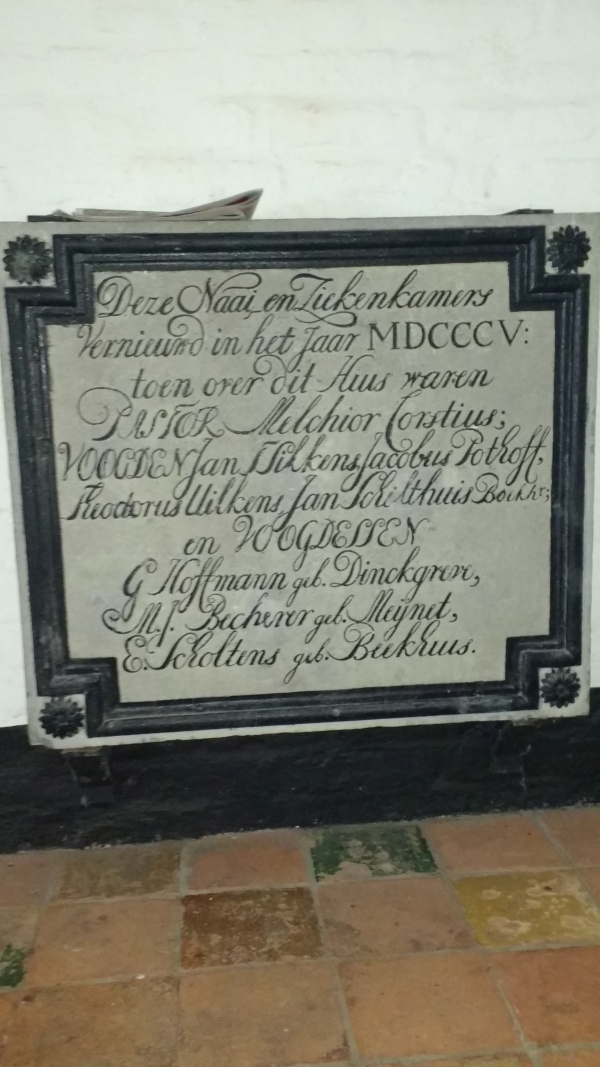 Deze Naai en Ziekenkamers
Vernieuwd in het Jaar MDCCCV:
toen over dit Huis waren
PASTOR Melchior Corstius;
VOOGDEN Jan Wilkens, Jacobus Pothoff,
Theodorus Uilkens, Jan Schilthuis Boekhr;
en VOOGDESSEN
G Hoffmann geb. Dinckgreve,
M.J. Becherer geb. Meijnet,
E. Scholtens geb. Beekhuis.